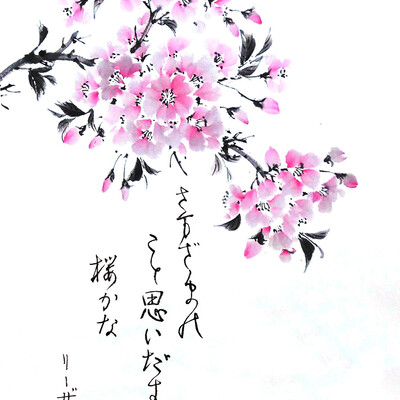 さまざまの
こと思いだす
桜かな
リーザ